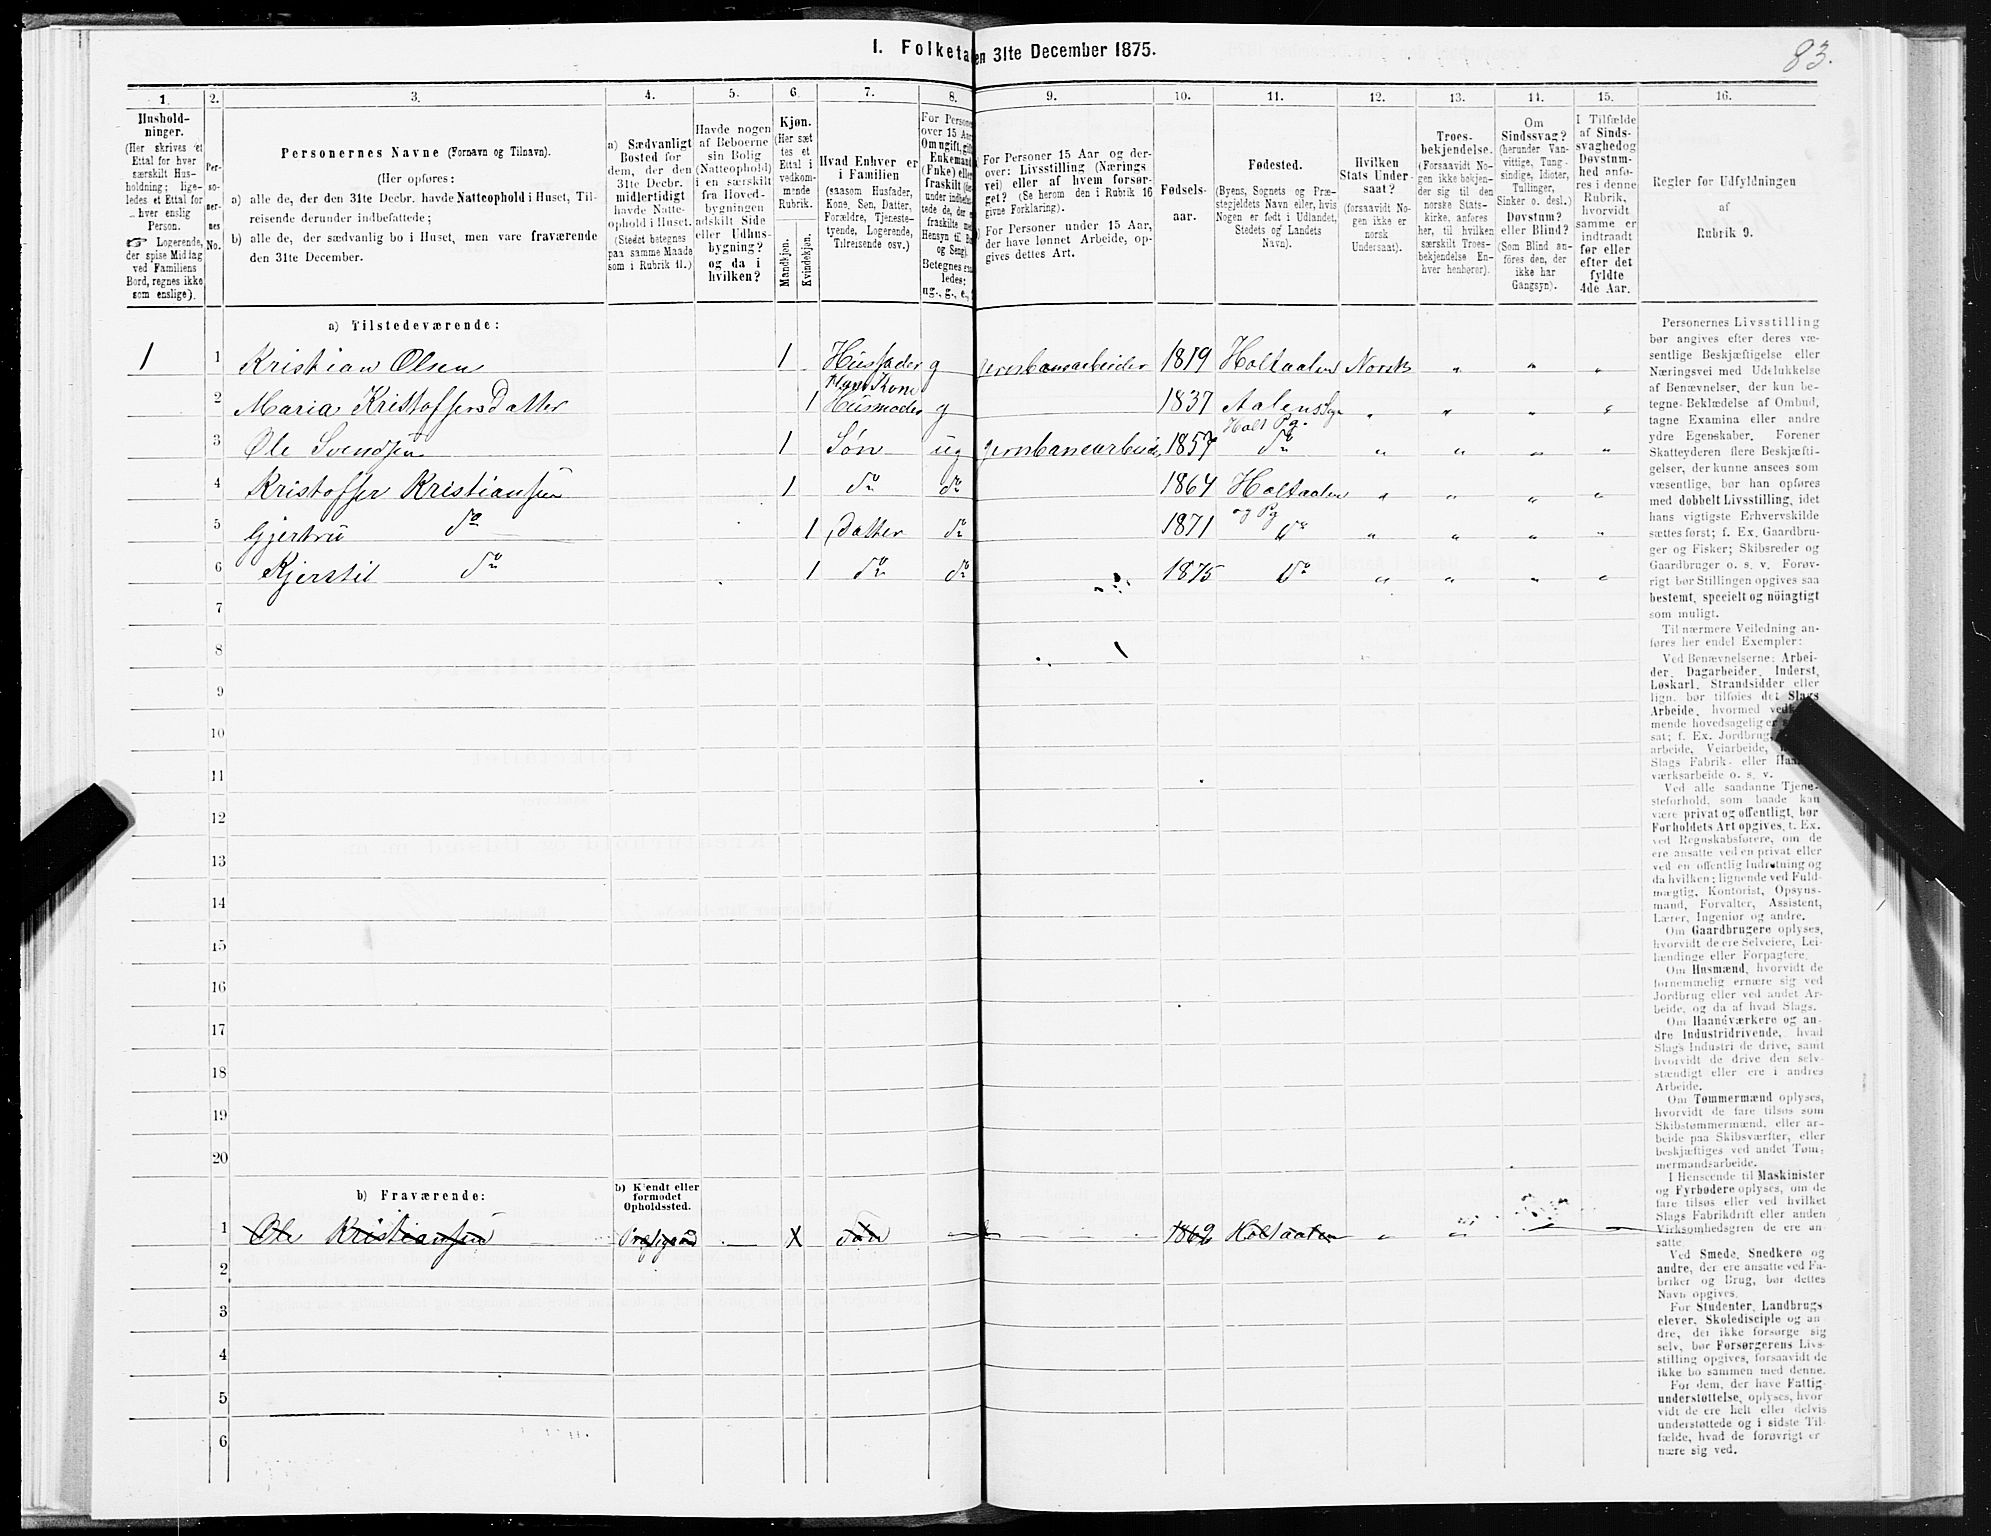 83.
I. Folketa en 31te December 1875.
1. 2. 3. 4. 5. 6. 7. 8. 9. 10. 11. 12. 13. 14. 15. 16.
Hushold-
ninger.
(Her skrives et
Ettal for hver
særskilt Hus-
holdning; lige-
ledes et Ettal for
hver enslig
Person.
☞ Logerende,
der spise Middag
ved Familiens
Bord, regnes ikke
som enslige).
Per-
so-
ner-
nes
No.
Personernes Navne (Fornavn og Tilnavn).
(Her opføres:
a) alle de, der den 31te Decbr. havde Natteophold i Huset, Til-
reisende derunder indbefattede;
b) alle de, der sædvanlig bo i Huset, men vare fraværende
den 31te December.
a) Sædvanligt
Bosted for
dem, der den
31te Decbr.
midlertidigt
havde Natte-
ophold i Huset.
(Stedet betegnes
paa samme Maade
som i Rubrik 11.)
Havde nogen
af Beboerne
sin Bolig
(Natteophold)
i en særskilt
fra Hoved-
bygningen
adskilt Side
eller Udhus-
bygning?
og da i
hvilken?
Kjøn.
(Her sæt
tes et
Ettal i
vedkom-
mende
Rubrik.
Mandkjøn.
Kvindekjøn.
Hvad Enhver er
i Familien
(saasom Husfader,
Kone, Søn, Datter,
Forældre, Tjeneste-
tyende, Logerende,
Tilreisende osv.)
For Persone
over 15 Aar
Om ugift, gift
Enkemand
(Enke) eller
fraskilt
Betegnes saa
ledes:
ug., g., e.,
For Personer 15 Aar og der-
over: Livsstilling (Nærings
vei) eller af hvem forsør-
get? (Se herom den i Rubrik 16
givne Forklaring).
For Personer under 15 Aar,
der have lønnet Arbeide, op-
gives dettes Art.
Fødsels-
aar.
Fødested.
(Byens, Sognets og Præ-
stegjeldets Navn eller, hvis
Nogen er født i Udlandet,
Stedets og Landets
Navn).
Hvilken
Stats Under-
saat?
(forsaavidt No-
gen ikke er
norsk
Undersaat).
Troes-
bekjendelse.
(Forsaavidt No-
gen ikke bekjen-
der sig til den
norske Stats-
kirke, anføres
her, til hvilken
særskilt Troes-
bekjendelse En-
hver henhører).
Om
Sindssvag?
(herunder Van-
vittige, Tung-
sindige, Idioter,
Tullinger,
Sinker o. desl.)
Døvstum?
eller Blind?
(Som Blind an-
føres den, der
ikke har
Gangsyn).
I Tilfælde
af Sinds-
svaghed og
Døvstum-
hed anfø-
res i denne
Rubrik,
hvorvidt
samme er
indtraadt
før eller
efter det
fyldte
4de Aar.
Regler for Udfyldningen
af
Rubrik 9.
a) Tilstedeværende:
1 1 Kristian Olsen 1 Husfader g jernbanearbeider 1819 Holtaalen Norsk " " "
Hans Kone
2 Maria KristoffersDatter 1 Husmoder g 1837 Aalens Sgn " " " "
Holt Pg.
3 Ole Svendsen 1 Søn ug jernbanearbeide 1857 do " " " "
4 Kristoffer Kristiansen 1 do do 1864 Holtaalen " " " "
og Pg
5 Gjertru do 1 Datter do 1871 do " " " "
6 Kjerstil do 1 do do 1875 do " " " "
7
8
9
10
11
12
13
14
15
16
17
18
19
20
b) Fraværende:
b) Kjendt eller
formodet
Opholdssted.
1 Ole Kristiansen Søn 1862 Holtaalen " "
2
3
4
5
6
Personernes Livsstilling
bør angives efter deres væ-
sentlige Beskjæftigelse eller
Næringsvei med Udelukkelse
af Benævnelser, der kun be-
tegne Beklædelse af Ombud,
tagne Examina eller andre
ydre Egenskaber. Forener
Skatteyderen flere Beskjæfti-
gelser, der kunne ansees som
væsentlige, bør han opføres
med dobbelt Livsstilling, idet
hans vigtigste Erhvervskilde
sættes først; f. Ex. Gaardbru-
ger og Fisker; Skibsreder og
Gaardbruger o. s. v. Forøv-
rigt bør Stillingen opgives saa
bestemt, specielt og nöiagtigt
som muligt.
Til nærmere Veiledning an-
føres her endel Exempler:
Ved Benævnelserne: Arbei-
der, Dagarbeider, Inderst,
Løskarl, Strandsidder eller
lign. bør tilføies det Slags
Arbeide, hvormed
mende hovedsagelig er
sat; f. Ex. Jordbrug,
arbeide, Veiarbeide,
Slags Fabrik- eller
værksarbeide o. s. v.
Ved alle saadanne Tjene-
steforhold, som baade kan
være privat og offentligt, bør
Forholdets Art opgives, f. Ex.
ved Regnskabsførere, om de
ere ansatte ved en privat eller
ved en offentlig Indretning og
da hvilken; lignende ved Fuld-
mægtig, Kontorist, Opsyns-
mand, Forvalter, Assistent,
Lærer, Ingeniør og andre.
Om Gaardbrugere oplyses,
hvorvidt de ere Selveiere, Lei-
lændinge eller Forpagtere.
Om Husmænd, hvorvidt de
fornemmelig ernære sig ved
Jordbrug eller ved andet Ar-
beide, og da af hvad Slags.
Om Haandværkere og an-
dre Industridrivende, hvad
Slags Industri de drive, samt
hvorvidt de drive den selv-
stændigt eller ere i andres
Arbeide.
Om Tømmermænd oplyses,
hvorvidt de fare tilsøs som
Skibstømmermænd, eller ar-
beide paa Skibsværfter, eller
beskjæftiges ved andet Tøm-
mermandsarbeide.
I Henseende til Maskinister
og Fyrbødere oplyses, om de
fare tilsøs eller ved hvilket
Slags Fabrikdrift eller anden
Virksomhedsgren de ere an-
satte.
Ved Smede, Snedkere og
andre, der ere ansatte ved Fa-
briker og Brug, bør dettes
Navn opgives.
For Studenter, Landbrugs
elever, Skoledisciple og an
dre, der ikke forsørge sig
selv, bør Forsørgerens Livs-
stilling opgives, forsaavidt de
ikke bo sammen med denne.
For dem, der have Fattig-
understøttelse, oplyses, hvor
vidt de ere helt eller delvis
understøttede og i sidste Til-
fælde, hvad de forøvrigt er
nære sig ved.